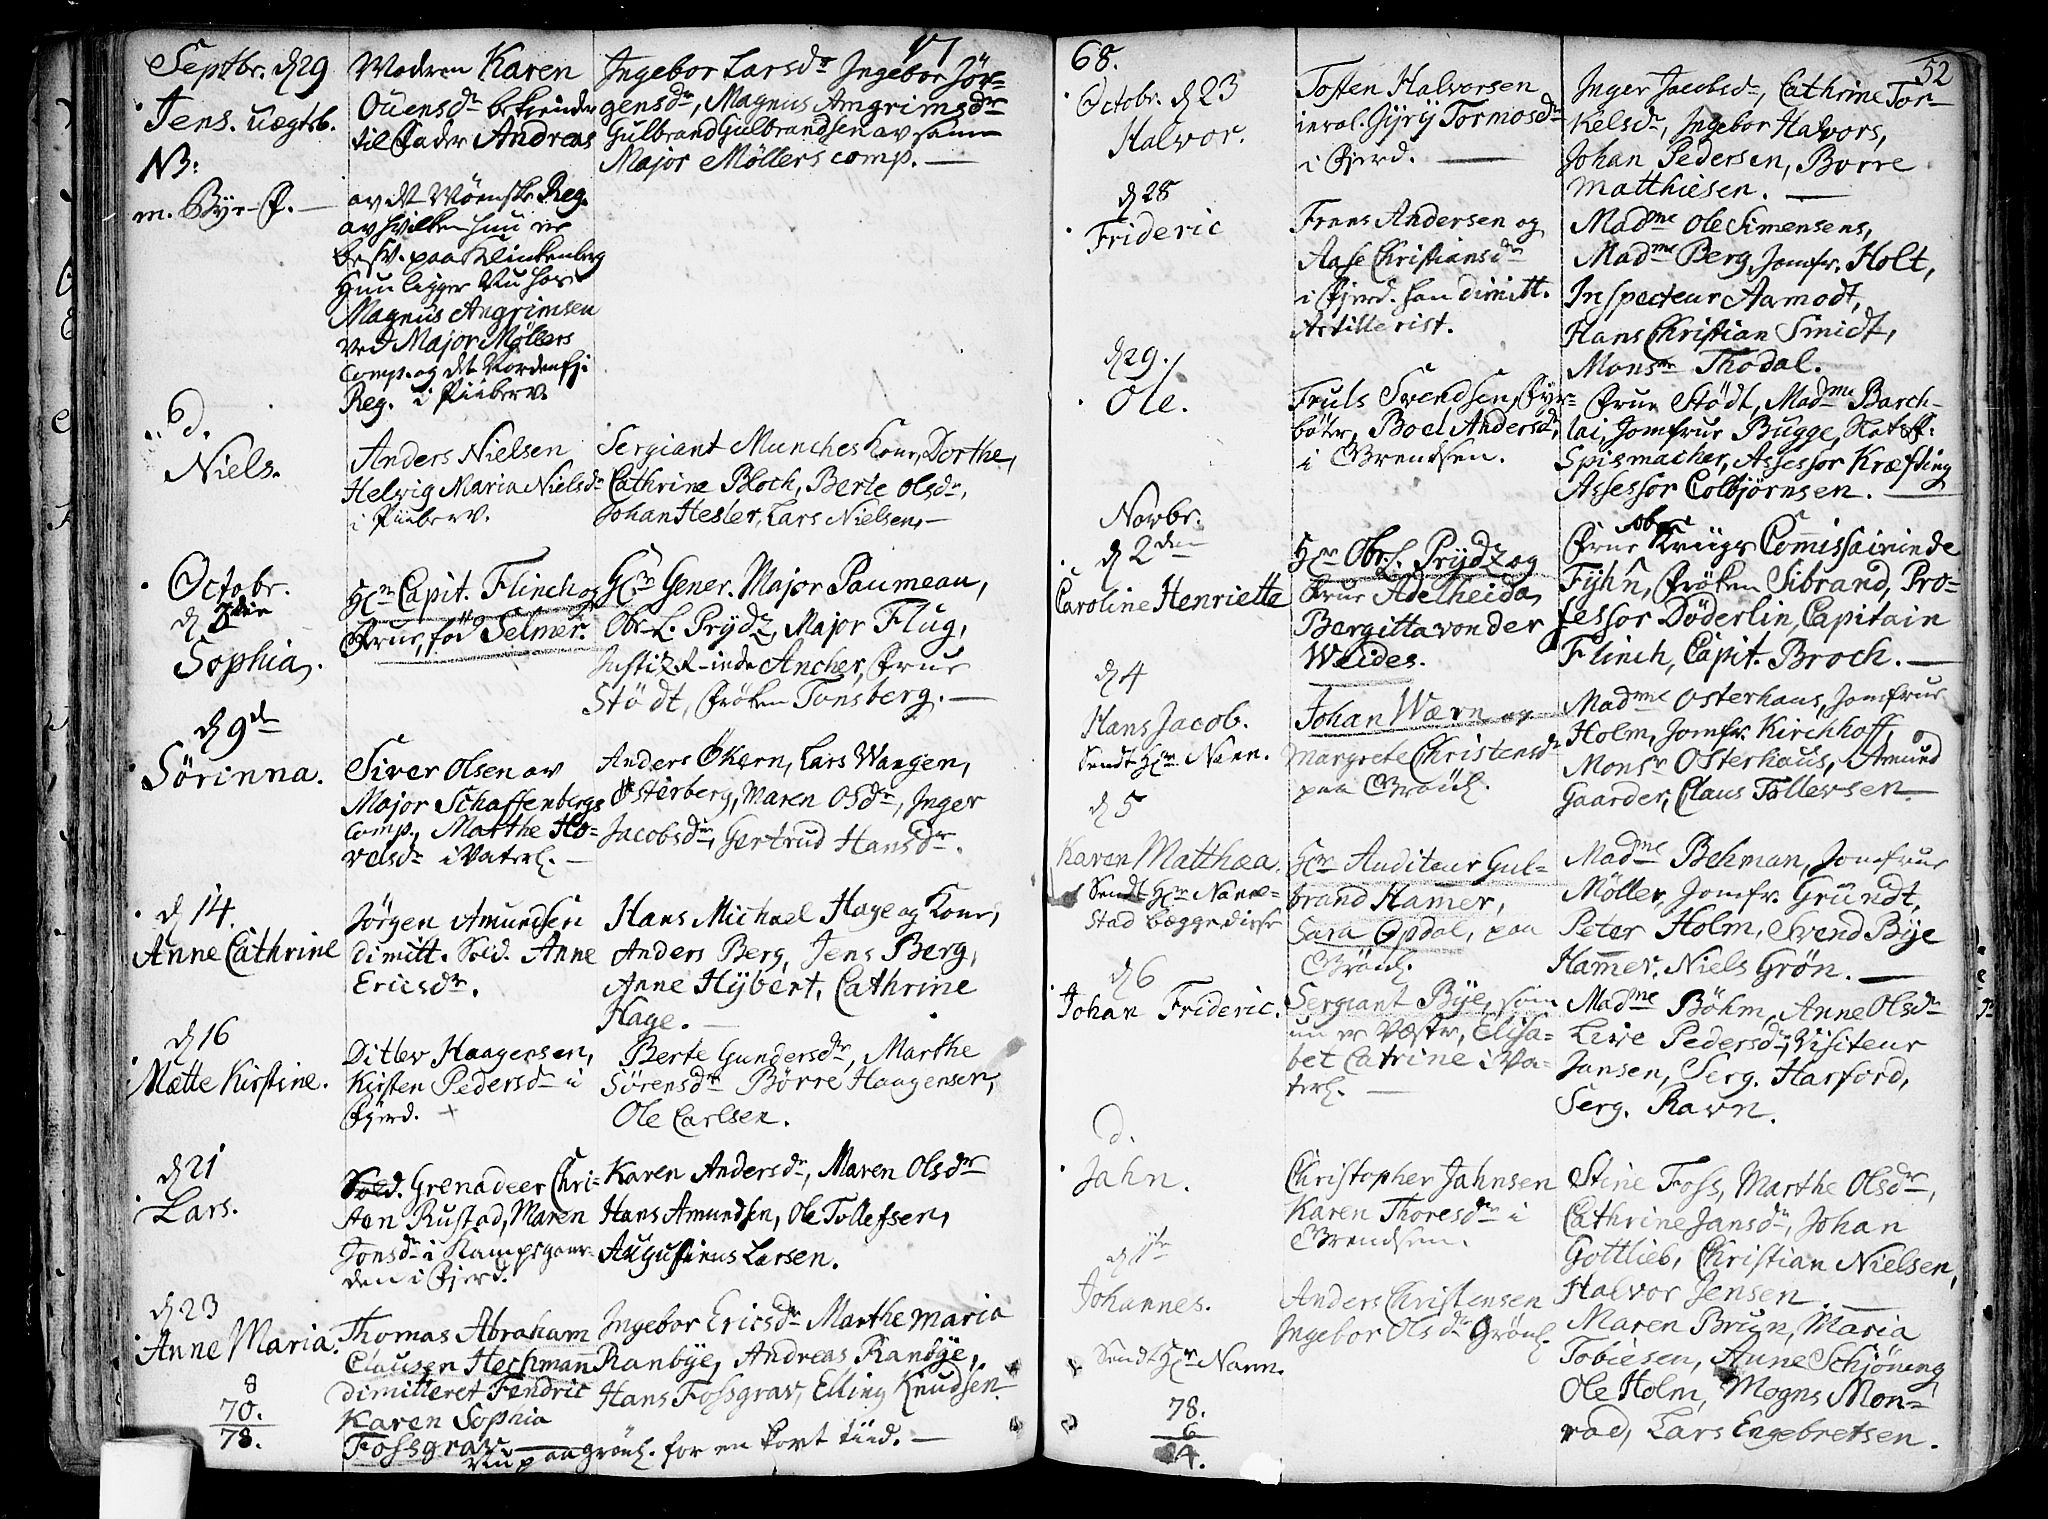 17
Septbr. d 29
Jens. uægtb.
NB:
m. Bÿe-P.
Modren Karen
Ouensdr bekiender
til Fader Andreas
av det Mönske Reg.
av hvilken hun er
besv. paa Klinkenberg
Hun ligger nu hos
Magnus Angrimsen
ved Major Möllers
Comp. og det Nordenfj.
Reg. i Piiberv.
Ingebor Larsdr Ingebor Jör-
gensdr, Magnus Amgrimsdr
Gulbrand Gulbrandsen av samme
Major Möllers comp. —
d.
Niels.
Anders Nielsen
Helvig Maria Nielsdr
i Piiberv.
Sergiant Munches Kone, Dorthe,
Cathrine Bloch, Berte Olsdr,
Johan Hesler, Lars Nielsen, —
Octobr.
d 3die
Sophia.
Hr Capit. Flinch og
Frue, föd Selmer.
Hr Gener. Major Paumeau,
Obr.L. Prÿdz, Major Flug,
Justiz R-inde Ancher, Frue
Stödt, Fröken Tonsberg. —
d 9de
Sörinna.
Siver Olsen av
Major Schaffenbergs
comp., Marthe Ho-
velsdr i Vaterl. —
Anders Økern, Lars Waagen,
Österberg, Maren Osdr, Inger
Jacobsdr, Gertrud Hansdr.
d 14.
Anne Cathrine
Jörgen Amundsen
dimitt. Sold. Anne
Ericsdr.
Hans Michael Hage og Kone,
Anders Berg, Jens Berg,
Anne Hÿbert, Cathrine
Hage. —
d 16
Mætte Kirstine.
Ditlev Haagensen,
Kirsten Pedersdr i
Fjerd.
Berte Gundersdr, Marthe
Sörensdr Börre Haagensen,
Ole Carlsen.
d 21
Lars.
Sold. Grenadeer Chri-
sten Rustad, Maren
Jonsdr i Rampegaar-
den i Fjerd.
Karen Andersdr, Maren Olsdr
Hans Amundsen, Ole Tollefsen,
Augustinus Larsen.
d 23
Anne Maria.
Thomas Abraham
Clausen Hechmann
dimitteret Fendric
Karen Sophia
Fossgrav
nu paa Grönl. for en kort tiid. —
Ingebor Ericsdr Marthe Maria
Ranbÿe, Andreas Ranbÿe,
Hans Fossgrav, Elling Knudsen
8
70.
78.
68.
52
Octobr. d 23
Halvor.
Tosten Halvorsen
Sÿrÿ Tormosdr
i Fjerd. —
Inger Jacobsdr, Cathrine Tor-
kelsdr, Ingebor Halvors,
Johan Pedersen, Borre
Matthiesen. —
d 28
Frideric
Frans Andersen og
Aase Christiansdr
i Fjerd. han dimitt.
Artillerist.
Madme Ole Simensens,
Madme Berg, Jomfr. Holt,
Inspecteur Aamodt,
Hans Christian Smidt,
Monsr Thodal.
d 29.
Ole.
Truls Svendsen, Fÿr-
böter, Boel Andersdr,
i Grendsen.
Frue Stödt, Madme Barch-
lai, Jomfrue Bugge,
Spismacher, Assessor Kræfting
Assessor Colbjörnsen. —
Novbr.
d 2den
Caroline Henrietta
Hr Obr.L. Prÿdz og
Frue Adelheida,
Bergitta von der
Weides.
Frue Krügs Comissairinde
Fÿhn, Fröken Sibrand, Pro-
fessor Döderlin, Capitain
Flinch, Capit. Broch. —
d 4
Hans Jacob.
Sendt Hr Nann.
Johan Wærn og
Margrete Christensdr
paa Grönl.
Madme Osterhaus, Jomfrue
Holm, Jomfr. Kirchhoff,
Monsr Osterhaus, Amund
Gaarder, Claus Tollevsen
d 5
Karen Matthæa.
Sendt Hr Nanne-
stad begge disse
Hr Auditeur Gul-
brand Hamer,
Sara Opdal, paa
Grönl.
Madme Behman, Jomfrue
Möller, Jomfr. Gründt,
Peter Holm, Svend Bÿe
Hamer, Niels Grön. —
d 6
Johan Frideric.
Sergiant Bÿe, som
nu er Væstr, Elisa-
bet Catrine i Va-
terl. —
Madme Böhm, Anne Olsdr
Live Pedersdr, Visiteur
Jansen, Serg. Harford,
Serg. Ravn.
d.
Jahn.
Christopher Jahnsen
Karen Thoresdr i
Grendsen.
Stine Foss, Marthe Olsdr,
Cathrine Jansdr, Johan
Gottlieb, Christian Nielsen,
Halvor Jensen. —
d 11te
Johannes.
Sendt Hr Nann.
Anders Christensen
Ingebor Olsdr Grönl.
Maren Brun, Maria
Tobiesen, Anne Schjöning
Ole Holm, Mogns Mon-
rad, Lars Engebretsen.
78.
6
84.